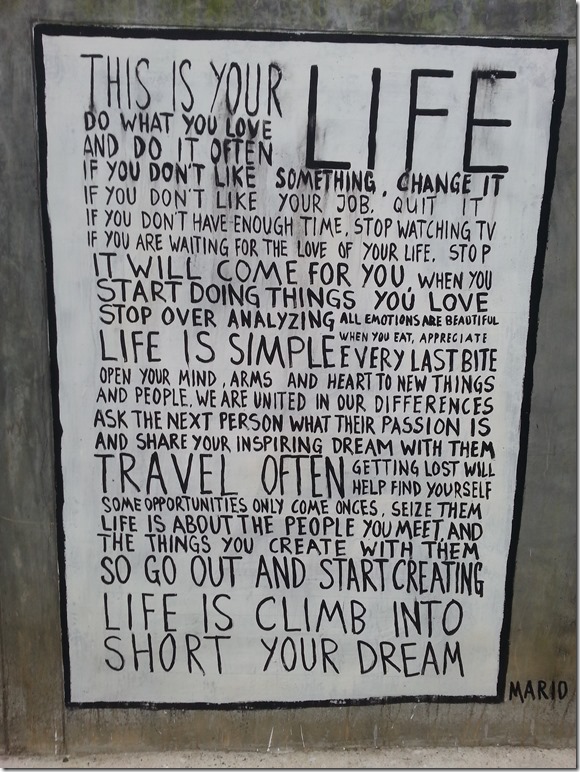 THIS IS YOUR LIFE
DO WHAT YOU LOVE
AND DO IT OFTEN
IF YOU DON'T LIKE SOMETHING, CHANGE IT
IF YOU DON'T LIKE YOUR JOB, QUIT IT
IF YOU DON'T HAVE ENOUGH TIME, STOP WATCHING TV
IF YOU ARE WAITING FOR THE LOVE OF YOUR LIFE, STOP
IT WILL COME FOR YOU, WHEN YOU
START DOING THINGS YOU LOVE
STOP OVER ANALYZING ALL EMOTIONS ARE BEAUTIFUL
WHEN YOU EAT, APPRECIATE
LIFE IS SIMPLE EVERY LAST BITE
OPEN YOUR MIND, ARMS AND HEART TO NEW THINGS
AND PEOPLE, WE ARE UNITED IN OUR DIFFERENCES
ASK THE NEXT PERSON WHAT THEIR PASSION IS
AND SHARE YOUR INSPIRING DREAM WITH THEM
TRAVEL OFTEN GETTING LOST WILL
HELP FIND YOURSELF
SOME OPPORTUNITIES ONLY COME ONCES, SEIZE THEM
LIFE IS ABOUT THE PEOPLE YOU MEET, AND
THE THINGS YOU CREATE WITH THEM
SO GO OUT AND START CREATING
LIFE IS CLIMB INTO
SHORT YOUR DREAM
MARIO